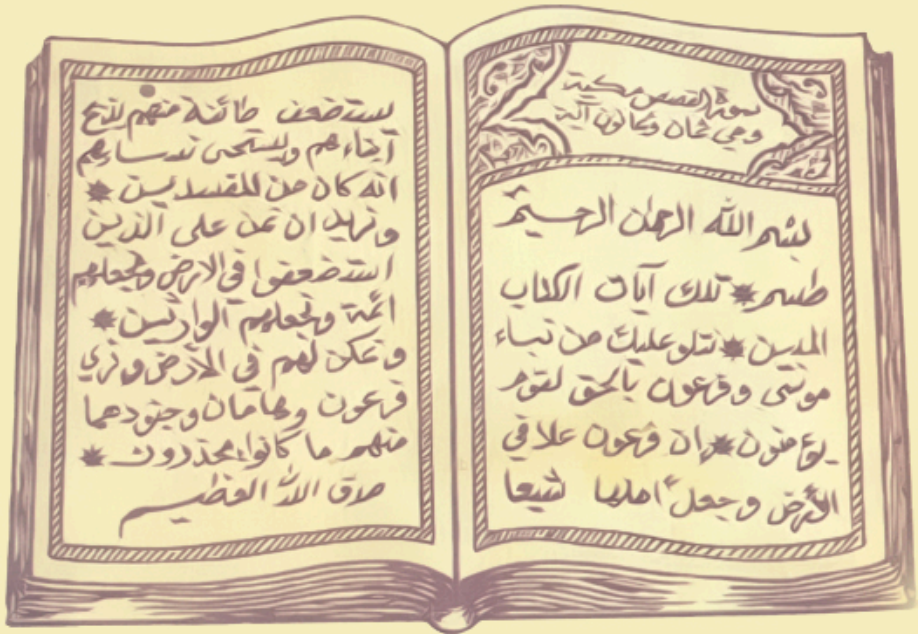 سورة القصص مكية
وهي ثمان وثمانون آية
بسم الله الرحمن الرحيم
طسم * تلك آيات الكتاب
المبين * نتلو عليك من نباء
موسى وفرعون بالحق لقوم
يؤمنون * ان فرعون علا في
الأرض وجعل اهلها شيعا
يستضعف طائفة منهم يذبح
أبناءهم ويستحي نساءهم
انه كان من المفسدين *
ونريد ان نمن على الذين
استضعفوا في الارض ونجعلهم
ائمة ونجعلهم الوارثين *
ونمكن لهم في الارض ونري
فرعون وهامان وجنودهما
منهم ما كانوا يحذرون *
صدق الله العظيم